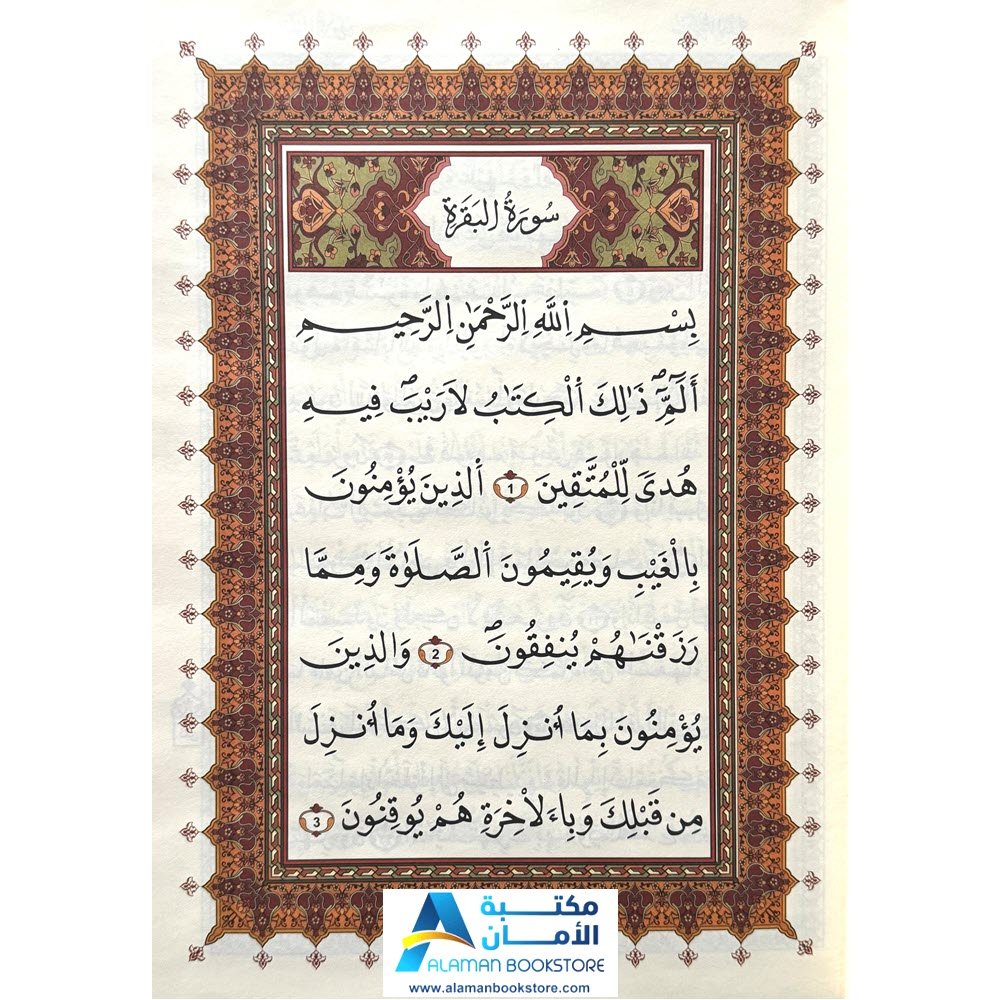 سُورَةُ الْبَقَرَةِ
بِسْمِ اِ۬للَّهِ اِ۬لرَّحْمَٰنِ اِ۬لرَّحِيمِ
أَلَٓمِّٓۖ ذَٰلِكَ اَ۬لْكِتَٰبُ لَا رَيْبَۖ فِيهِ
هُدىَ لِّلْمُتَّقِينَ 1 اَ۬لذِينَ يُؤْمِنُونَ
بِالْغَيْبِ وَيُقِيمُونَ اَ۬لصَّلَوٰةَ وَمِمَّا
رَزَقْنَٰهُمْ يُنفِقُونَۖ 2 وَالذِينَ
يُؤْمِنُونَ بِمَا أُنزِلَ إِلَيْكَ وَمَا أُنزِلَ
مِن قَبْلِكَ وَبِالَاخِرَةِ هُمْ يُوقِنُونَ 3
مكتبة
الأمان
ALAMAN BOOKSTORE
www.alamanbookstore.com